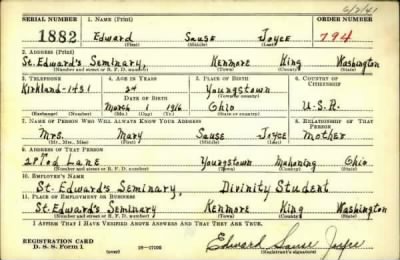 6/2/41
SERIAL NUMBER 1. NAME (Print) ORDER NUMBER
1882 Edward Sause Joyce 794
(First) (Middle) (Last)
2. ADDRESS (Print)
St. Edward's Seminary, Kenmore King Washington
(Number and street or R. F. D. number) (Town) (County) (State)
3. TELEPHONE 4. AGE IN YEARS 5. PLACE OF BIRTH 6. COUNTRY OF CITIZENSHIP
Kirkland-1451 24 Youngstown
DATE OF BIRTH (Town or county)
March 1 1916 Ohio U.S.A.
(Exchange) (Number) (Mo.) (Day) (Yr.) (State or country)
7. NAME OF PERSON WHO WILL ALWAYS KNOW YOUR ADDRESS 8. RELATIONSHIP OF THAT PERSON
Mrs. Mary Sause Joyce Mother
(Mr., Mrs., Miss) (First) (Middle) (Last)
9. ADDRESS OF THAT PERSON
28 Tod Lane Youngstown Mahoning Ohio
(Number and street or R. F. D. number) (Town) (County) (State)
10. EMPLOYER'S NAME
St. Edward's Seminary, Divinity Student
11. PLACE OF EMPLOYMENT OR BUSINESS
St. Edward's Seminary Kenmore King Washington
(Number and street or R. F. D. number) (Town) (County) (State)
I AFFIRM THAT I HAVE VERIFIED ABOVE ANSWERS AND THAT THEY ARE TRUE.
REGISTRATION CARD
D. S. S. Form 1 Edward Sause Joyce
(Registrant's signature)